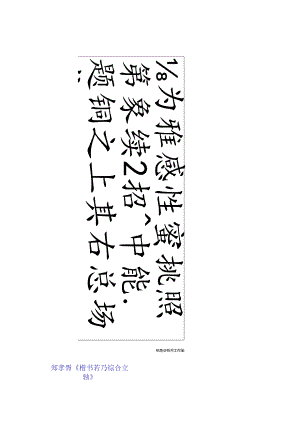 ⅛为雅感性蜜挑照
第象续2招^中能.
题铜之上其右总场
郑孝胥《楷书若乃综合立
轴》